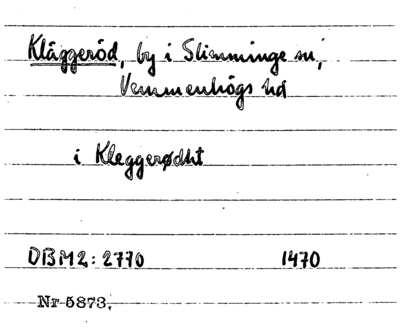 Kläggeröd, by i Slimminge sn,
Vemmenhögs hd
i Kleggerødht
DBM2: 2770 1470
Nr 5873.